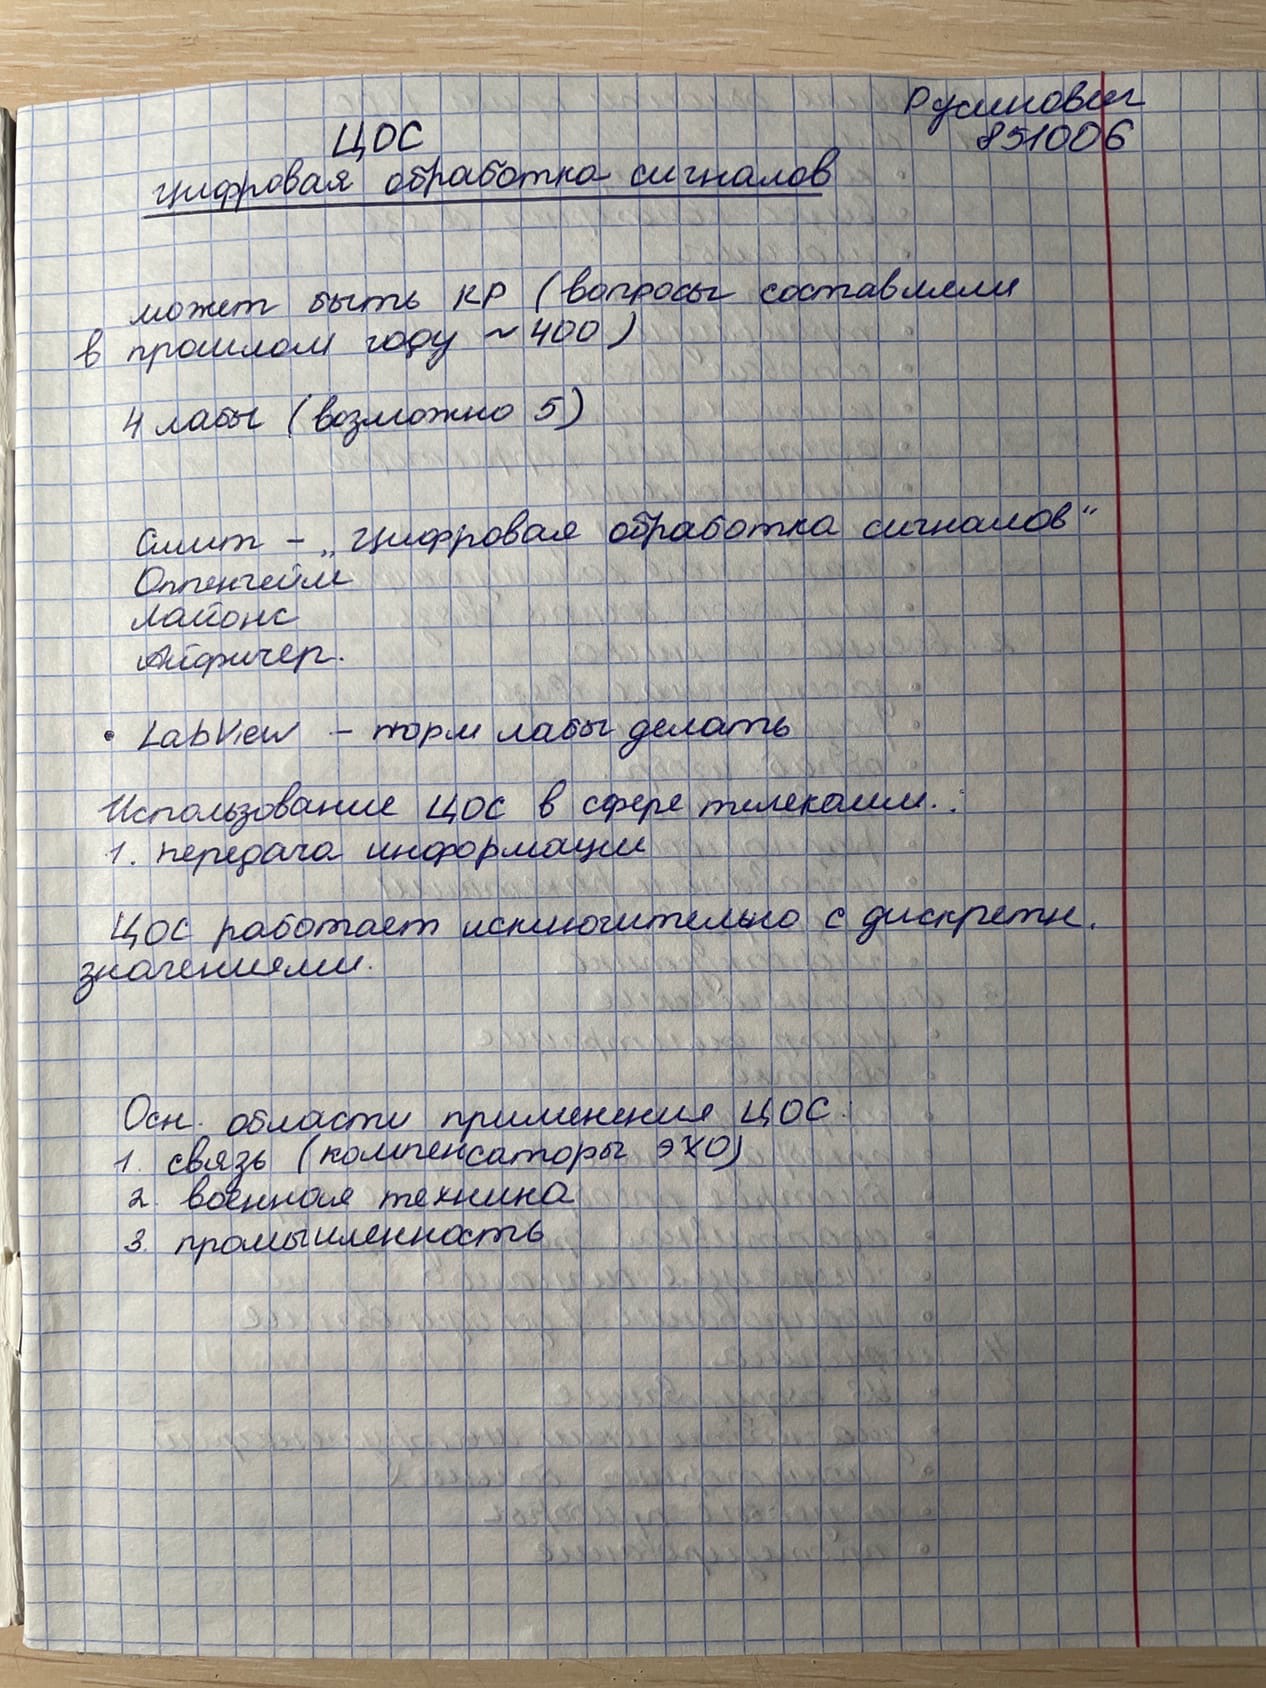 Русинович
851006
ЦОС
цифровая обработка сигналов
может быть КР (вопросы составляли
в прошлом году ~ 400)
4 лабы (возможно 5)
Смит - „Цифровая обработка сигналов“
Оппенгейм
Лайонс
Айфичер.
• LabView - норм лабы делать
Использование ЦОС в сфере телекомм.:
1. передача информации
ЦОС работает исключительно с дискретн.
значениями.
Осн. области применения ЦОС:
1. связь (компенсаторы эхо)
2. военная техника
3. промышленность